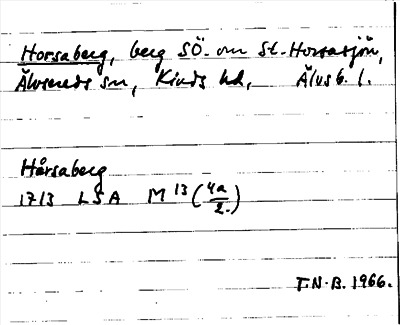 Horsaberg, berg SÖ. om St. Horsasjön,
Älvsereds sn, Kinds hd, Älvsb. l.
Hårsaberg
1713 LSA M 13 (4a/2.)
T.N.B. 1966.